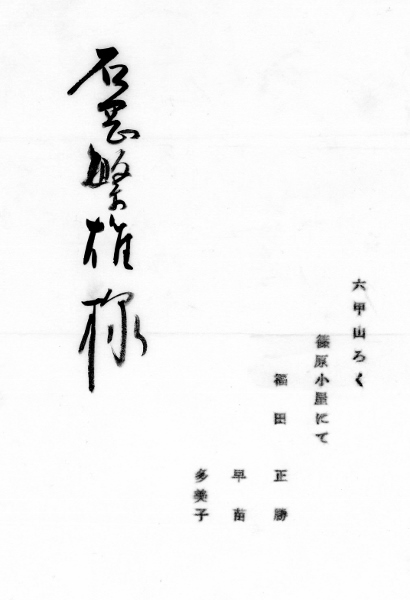 六甲山ろく
篠原小屋にて
福田正勝
早苗
多美子
石岡繁雄様